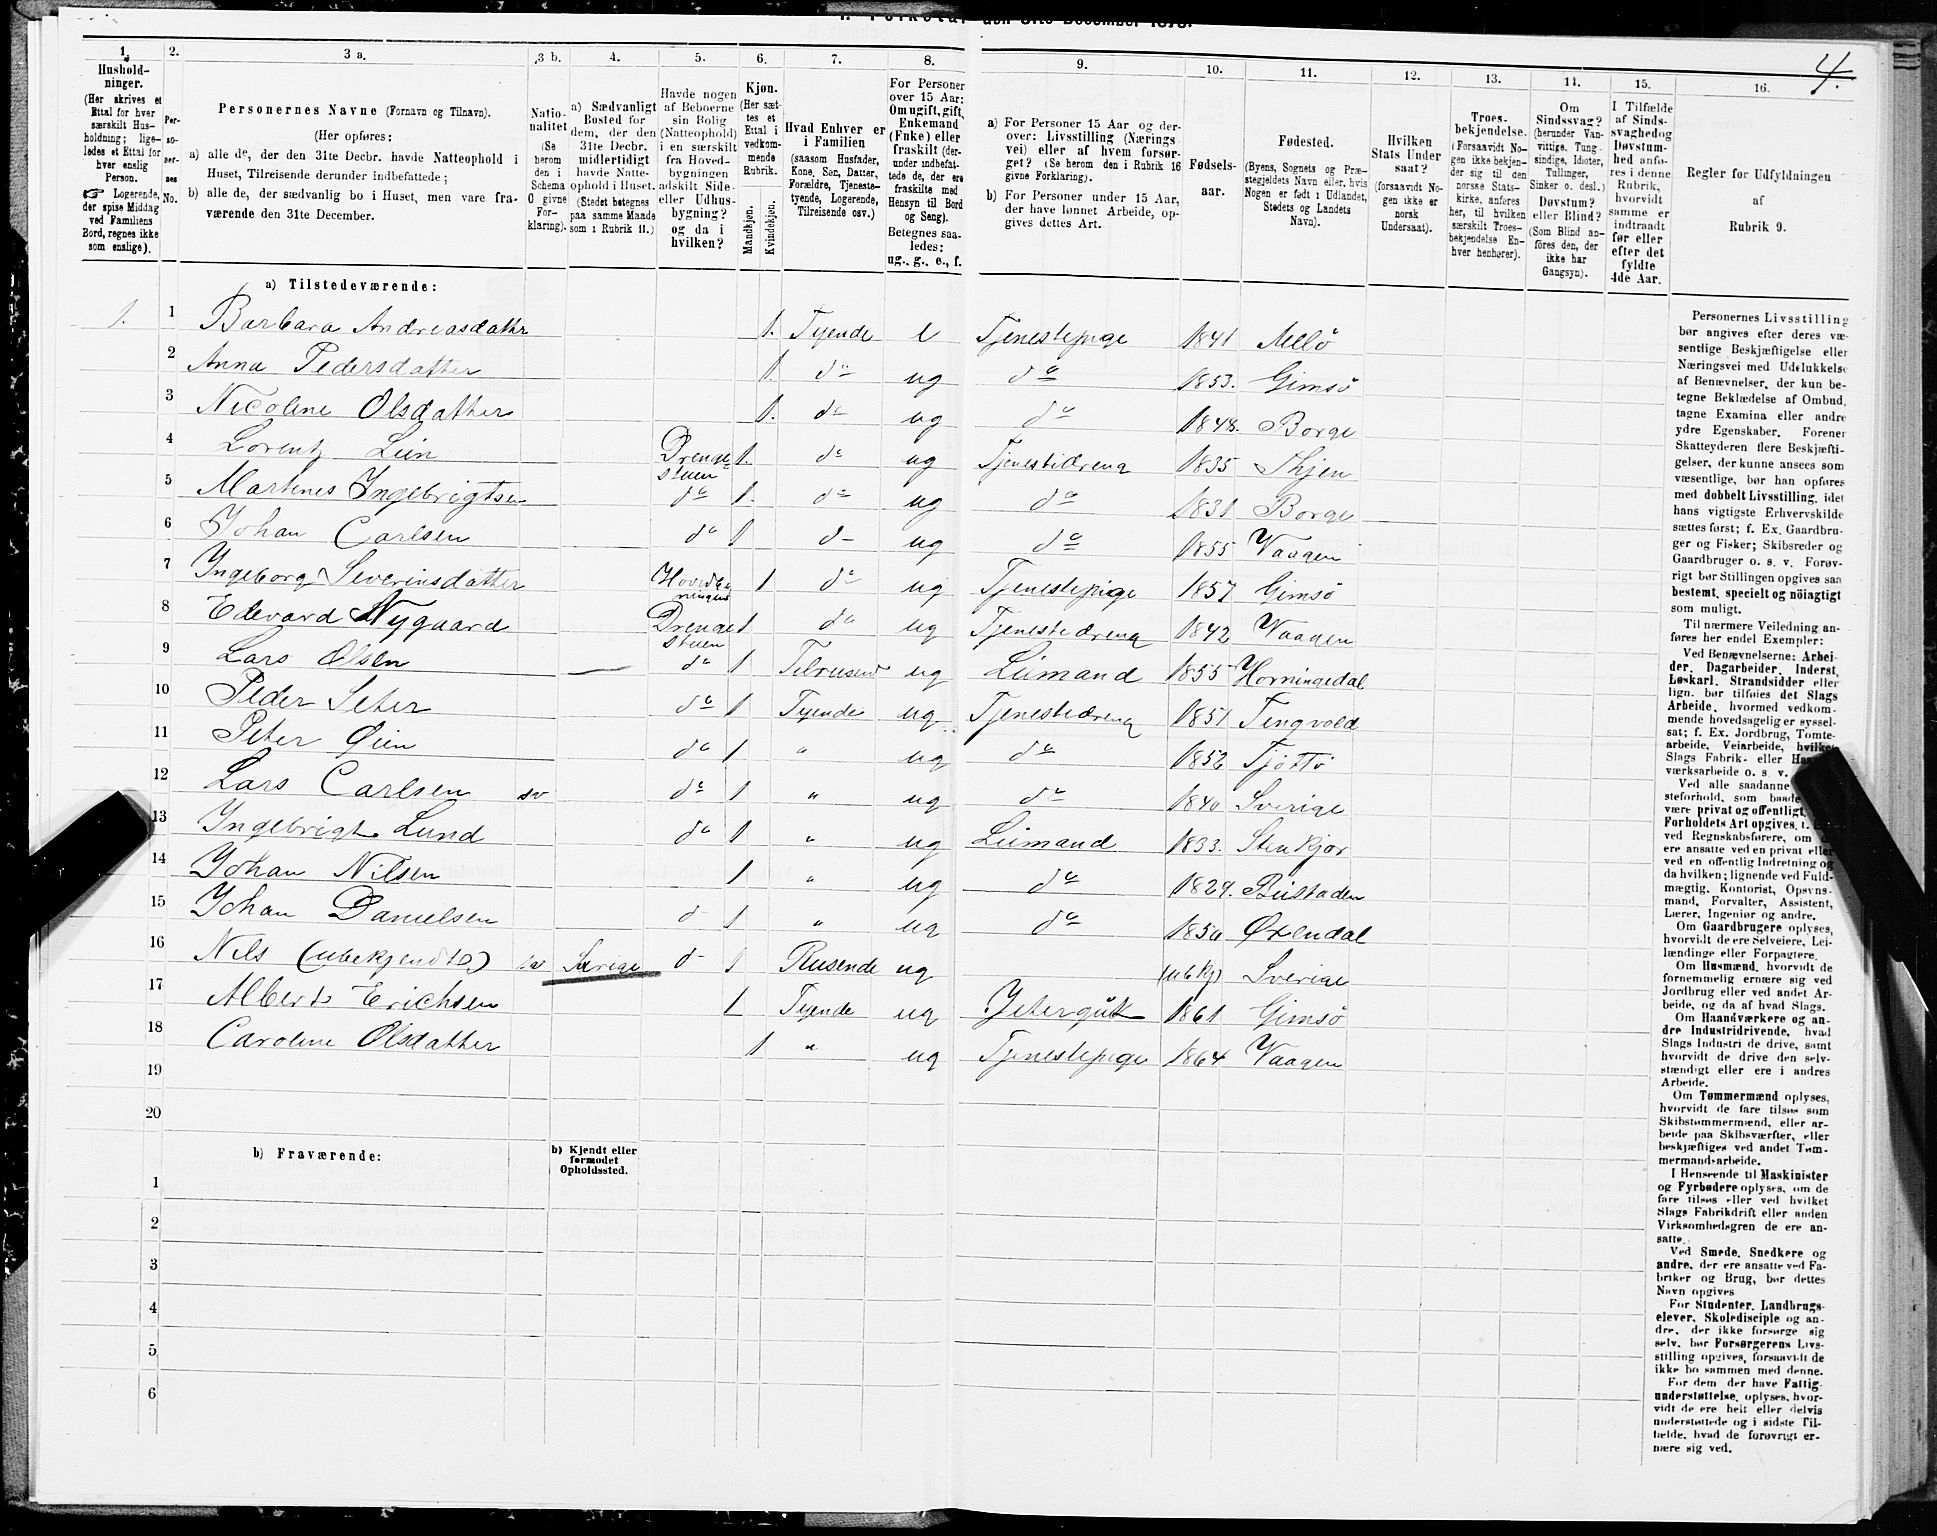 1. Folketal den 31te December 1875.
4.
1. 2. 3 a. 3 b. 4. 5. 6. 7. 8. 9. 10. 11. 12. 13. 14. 15. 16.
Hushold-
ninger.
(Her skrives et
Ettal for hver
særskilt Hus-
holdning; lige-
ledes et Ettal for
hver enslig
Person.
☞ Logerende,
der spise Middag
ved Familiens
Bord, regnes ikke
som enslige).
Per-
so-
ner-
nes
No.
Personernes Navne (Fornavn og Tilnavn).
(Her opføres:
a) alle de, der den 31te Decbr. havde Natteophold i
Huset, Tilreisende derunder indbefattede;
b) alle de, der sædvanlig bo i Huset, men vare fra-
værende den 31te December.
Natio-
nalitet
(Se
herom
den i
Schema
O givne
For-
klaring).
a) Sædvanligt
Bosted for
dem, der den
31te Decbr.
midlertidigt
havde Natte-
ophold i Huset.
(Stedet betegnes
paa samme Maade
som i Rubrik 11.)
Havde nogen
af Beboerne
sin Bolig
(Natteophold)
i en særskilt
fra Hoved-
bygningen
adskilt Side-
eller Udhus-
bygning?
og da i
hvilken?
Kjøn.
(Her sæt-
tes et
Ettal i
vedkom-
mende
Rubrik.
Mandkjøn.
Kvindekjøn.
Hvad Enhver er
i Familien
(saasom Husfader,
Kone, Søn, Datter,
Forældre, Tjeneste-
tyende, Logerende,
Tilreisende osv.)
For Personer
over 15 Aar:
Om ugift, gift,
Enkemand
(Enke) eller
fraskilt (der-
under indbefat-
tede de, der ere
fraskilte med
Hensyn til Bord
og Seng).
Betegnes saa-
ledes:
ug., g., e., f.
a) For Personer 15 Aar og der-
over: Livsstilling (Nærings-
vei) eller af hvem forsør-
get? (Se herom den i Rubrik 16
givne Forklaring).
b) For Personer under 15 Aar,
der have lønnet Arbeide, op-
gives dettes Art.
Fødsels-
aar.
Fødested.
(Byens, Sognets og Præ-
stegjeldets Navn eller, hvis
Nogen er født i Udlandet,
Stedets og Landets
Navn).
Hvilken
Stats Under
saat?
(forsaavidt No-
gen ikke er
norsk
Undersaat).
Troes-
bekjendelse.
(Forsaavidt No-
gen ikke bekjen-
der sig til den
norske Stats-
kirke, anføres
her, til hvilken
særskilt Troes-
bekjendelse En-
hver henhører).
Om
Sindssvag?
(herunder Van-
vittige, Tung-
sindige, Idioter,
Tullinger,
Sinker o. desl.)
Døvstum?
eller Blind?
(Som Blind an-
føres den, der
ikke har
Gangsyn).
I Tilfælde
af Sinds-
svaghed og
Døvstum-
hed anfø-
res i denne
Rubrik,
hvorvidt
samme er
indtraadt
før eller
efter det
fyldte
4de Aar.
Regler for Udfyldningen
af
Rubrik 9.
a) Tilstedeværende:
1. 1 Barbara Andreasdattr 1. Tyende e Tjenestepige 1841 Melö
2 Anna Pedersdatter 1. do ug do 1853. Gimsö
3 Nicoline Olsdatter 1. do ug do 1848. Borge
4 Lorentz Lien Drenge-stuen 1. do ug Tjenestedreng 1835
5 Martenes Ingebrigtsen do 1. do ug do 1831 Borge
6 Johan Carlsen do 1 d- ug do 1855 Vaagen
7 Ingeborg Severinsdatter 1 do ug Tjenestepige 1857 Gimsö
8 Edevard Nygaard Drengestuen 1 do ug Tjenestedreng 1842 Vaagen
9 Lars Olsen — do 1 Tilreisend ug Leimand 1855 Horningedal
10 Peder Seter do 1 Tyende ug. Tjenestedreng 1851 Tingvold
11 Peter Øien do 1 " ug do 1852 Tjöttö
12 Lars Carlsen sv do 1 " ug do 1840 Sverige
13 Ingebrigt Lund do 1 " ug Leimand 1833. Stenkjær
14 Johan Nilsen 1 " ug do 1829. Beistaden
15 Johan Danielsen d- 1 " ug do 1850 Øxendal
16 Nils (ubekjendt) sv Sverige d- 1 Reisende ug (ubkj) Sverige
17 Albert Erichsen 1 Tyende ug Jetergut 1861 Gimsö
18 Caroline Olsdatter 1 " ug Tjenestepige 1864 Vaagen
19
20
b) Fraværende:
b) Kjendt eller
formodet
Opholdssted.
1
2
3
4
5
6
Personernes Livsstilling
bør angives efter deres væ-
sentlige Beskjæftigelse eller
Næringsvei med Udelukkelse
af Benævnelser, der kun be-
tegne Beklædelse af Ombud,
tagne Examina eller andre
ydre Egenskaber. Forener
Skatteyderen flere Beskjæfti-
gelser, der kunne ansees som
væsentlige, bør han opføres
med dobbelt Livsstilling, idet
hans vigtigste Erhvervskilde
sættes først; f. Ex. Gaardbru-
ger og Fisker; Skibsreder og
Gaardbruger o. s. v. Forøv-
rigt bør Stillingen opgives saa
bestemt, specielt og nöiagtigt
som muligt.
Til nærmere Veiledning an-
føres her endel Exempler:
Ved Benævnelserne: Arbei-
der, Dagarbeider, Inderst,
Løskarl, Strandsidder eller
lign. bør tilføies det Slags
Arbeide, hvormed vedkom-
mende hovedsagelig er syssel-
sat; f. Ex. Jordbrug, Tomte-
arbeide, Veiarbeide, hvilket
Slags Fabrik- eller
værksarbeide o. s. v.
Ved alle saadanne
steforhold, som baade
være privat og offentligt,
Forholdets Art opgives,
ved Regnskabsførere, om
ere ansatte ved en privat eller
ved en offentlig Indretning og
da hvilken; lignende ved Fuld-
mægtig, Kontorist, Opsyns-
mand, Forvalter, Assistent,
Lærer, Ingeniør og andre.
Om Gaardbrugere oplyses,
hvorvidt de ere Selveiere, Lei-
lændinge eller Forpagtere.
Om Husmænd, hvorvidt de
fornemmelig ernære sig ved
Jordbrug eller ved andet Ar-
beide, og da af hvad Slags.
Om Haandværkere og an-
dre Industridrivende, hvad
Slags Industri de drive, samt
hvorvidt de drive den selv-
stændigt eller ere i andres
Arbeide.
Om Tømmermænd oplyses,
hvorvidt de fare tilsøs som
Skibstømmermænd, eller ar-
beide paa Skibsværfter, eller
beskjæftiges ved andet Tøm-
mermandsarbeide.
I Henseende til Maskinister
og Fyrbødere oplyses, om de
fare tilsøs eller ved hvilket
Slags Fabrikdrift eller anden
Virksomhedsgren de ere an-
satte.
Ved Smede, Snedkere og
andre, der ere ansatte ved Fa-
briker og Brug, bør dettes
Navn opgives
For Studenter, Landbrugs-
elever, Skoledisciple og an-
dre, der ikke forsørge sig
selv, bør Forsørgerens Livs-
stilling opgives, forsaavidt de
ikke bo sammen med denne.
For dem, der have Fattig-
understøttelse, oplyses, hvor-
vidt de ere helt eller delvis
understøttede og i sidste Til-
fælde, hvad de forøvrigt er-
nære sig ved.